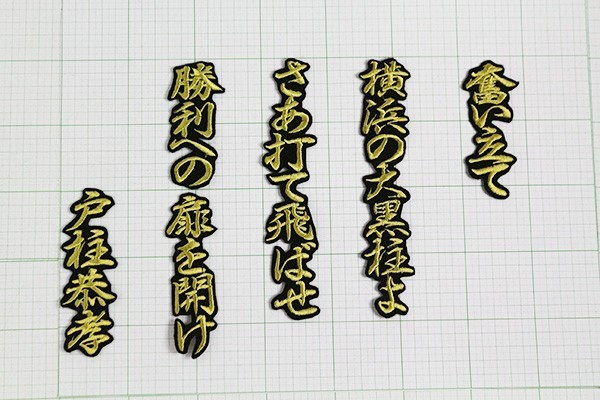 奮い立て
横浜の大黒柱よ
さあ打て飛ばせ
勝利への扉を開け
戸柱恭孝